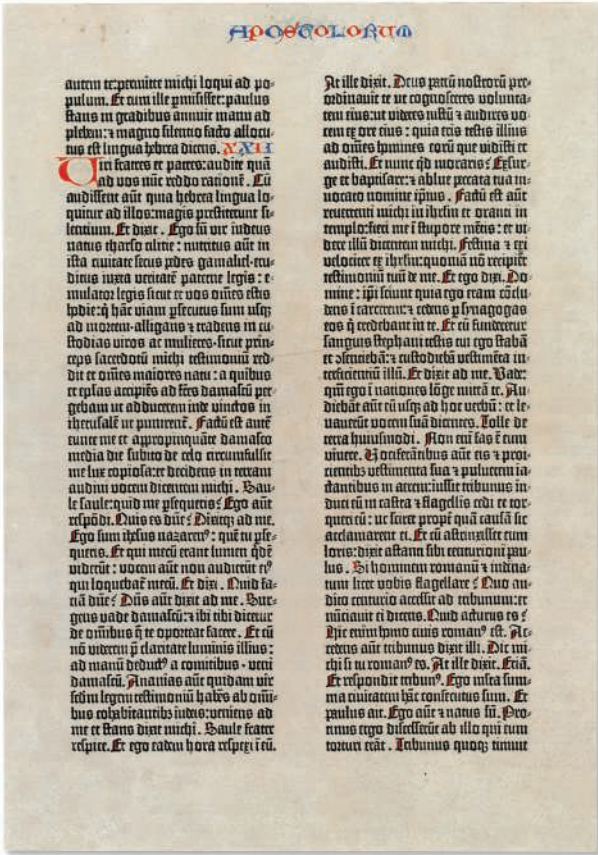 APOSTOLORUM
autem te: permitte michi loqui ad po-
pulum. Et cum ille ꝑmisisset: paulus
stans in gradibus annuit manu ad
plebem: ⁊ magno silentio facto allocu-
tus est lingua hebrea dicens. XXII
Viri fratres et patres: audite quā
ad vos nūc reddo rationē. Cū
audissent aūt quia hebrea lingua lo-
quitur ad illos: magis prestiterunt si-
lentium. Et dixit. Ego sū vir iudeus
natus tharso cilicie: nutritus aūt in
ista civitate secus pedes gamaliel: eru-
ditus iuxta veritatē paterne legis: e-
mulator legis sicut et vos om̄es estis
hodie: q̄ hāc viam ꝑsecutus sum usqꝫ
ad mortem: alligans ⁊ tradens in cu-
stodias viros ac mulieres: sicut prin-
ceps sacerdotū michi testimoniū red-
dit et om̄es maiores natu: a quibus
et eplas accipiēs ad fr̄es damascū per-
gebam ut adducerem inde vinctos in
iherusalē ut punirent᷑. Factū est autē
eunte me et appropinquāte damasco
media die subito de celo circumfulsit
me lux copiosa: et decidens in terram
audivi vocem dicentem michi. Sau-
le saule: quid me ꝑsequeris? Ego aūt
respōdi. Quis es dn̄e? Dixitqꝫ ad me.
Ego sum ihesus nazarenꝰ: quē tu ꝑse-
queris. Et qui mecū erant lumen qdē
viderūt: vocem aūt non audierūt eiꝰ
qui loquebat᷑ mecū. Et dixi. Quid fa-
ciā dn̄e? Dn̄s aūt dixit ad me. Sur-
gens vade damascū: ⁊ ibi tibi dicetur
de om̄ibus q̄ te oporteat facere. Et cū
nō viderem p̄ claritate luminis illius:
ad manū deductꝰ a comitibus veni
damascū. Ananias aūt quidam vir
scdm legem testimoniū habēs ab om̄i-
bus cohabitantibꝫ iudeis: veniens ad
me et stans dixit michi. Saule frater
respice. Et ego eadem hora respexi ī eū.
At ille dixit. Deus patrū nostrorū pre-
ordinavit te ut cognosceres volunta-
tem eius: ut videres iustū ⁊ audires vo-
cem ex ore eius: quia eris testis illius
ad om̄es homines eorū que vidisti et
audisti. Et nunc qd moraris? Exsur-
ge et baptisare: ⁊ ablue peccata tua in-
vocato nomine ipius. Factū est aūt
revertenti michi in ihrlm et oranti in
templo: fieri me ī stupore mētis: et vi-
dere illū dicentem michi. Festina ⁊ exi
velociter ex ihrlm: quoniā nō recipiēt
testimoniū tuū de me. Et ego dixi. Do-
mine: ipi sciunt quia ego eram cōclu-
dens ī carcerem: ⁊ cedens ꝑ synagogas
eos q̄ credebant in te. Et cū funderetur
sanguis stephani testis tui ego stabā
et ↄsentiebā: ⁊ custodiebā vestimēta in-
terficientiū illū. Et dixit ad me. Vade:
qm̄ ego ī nationes lōge mittā te. Au-
diebāt aūt eū usqꝫ ad hoc verbū: et le-
vaverūt vocem suā dicentes. Tolle de
terra huiusmodi. Non eni᷑ fas ē eum
vivere. Vociferātibus aūt eis ⁊ proi-
cientibꝫ vestimenta sua ⁊ pulverem ia-
ctantibus in aerem: iussit tribunus in-
duci eū in castra ⁊ flagellis cedi et tor-
queri eū: ut sciret propt᷑ quā causā sic
acclamarent ei. Et cū astrinxissēt eum
loris: dixit astanti sibi centurioni pau-
lus. Si hominem romanū ⁊ indem-
natum licet vobis flagellare? Quo au-
dito centurio accessit ad tribunum: et
nūciavit ei dicens. Quid acturus es?
Hic enim homo civis romanꝰ est. Ac-
cedens aūt tribunus dixit illi. Dic mi-
chi si tu romanꝰ es. At ille dixit. Etiā.
Et respondit tribunꝰ. Ego multa sum-
ma civitatem hāc consecutus sum. Et
paulus ait. Ego aūt ⁊ natus sū. Pro-
tinus ergo discesserūt ab illo qui eum
torturi erāt. Tribunus quoqꝫ timuit